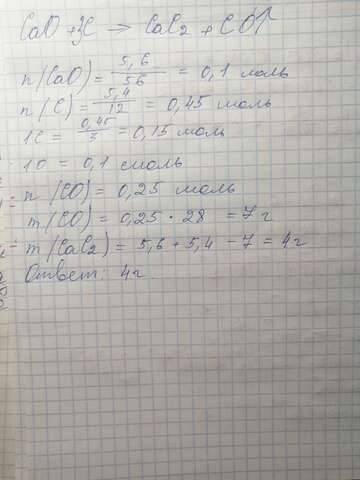 CaO + 3C → CaC2 + CO↑
n(CaO) = 5,6/56 = 0,1 моль
n(C) = 5,4/12 = 0,45 моль
1C = 0,45/3 = 0,15 моль
1O = 0,1 смоль
n(CO) = 0,25 моль
m(CO) = 0,25 · 28 = 7г
m(CaC2) = 5,6 + 5,4 - 7 = 4г
Ответ: 4г